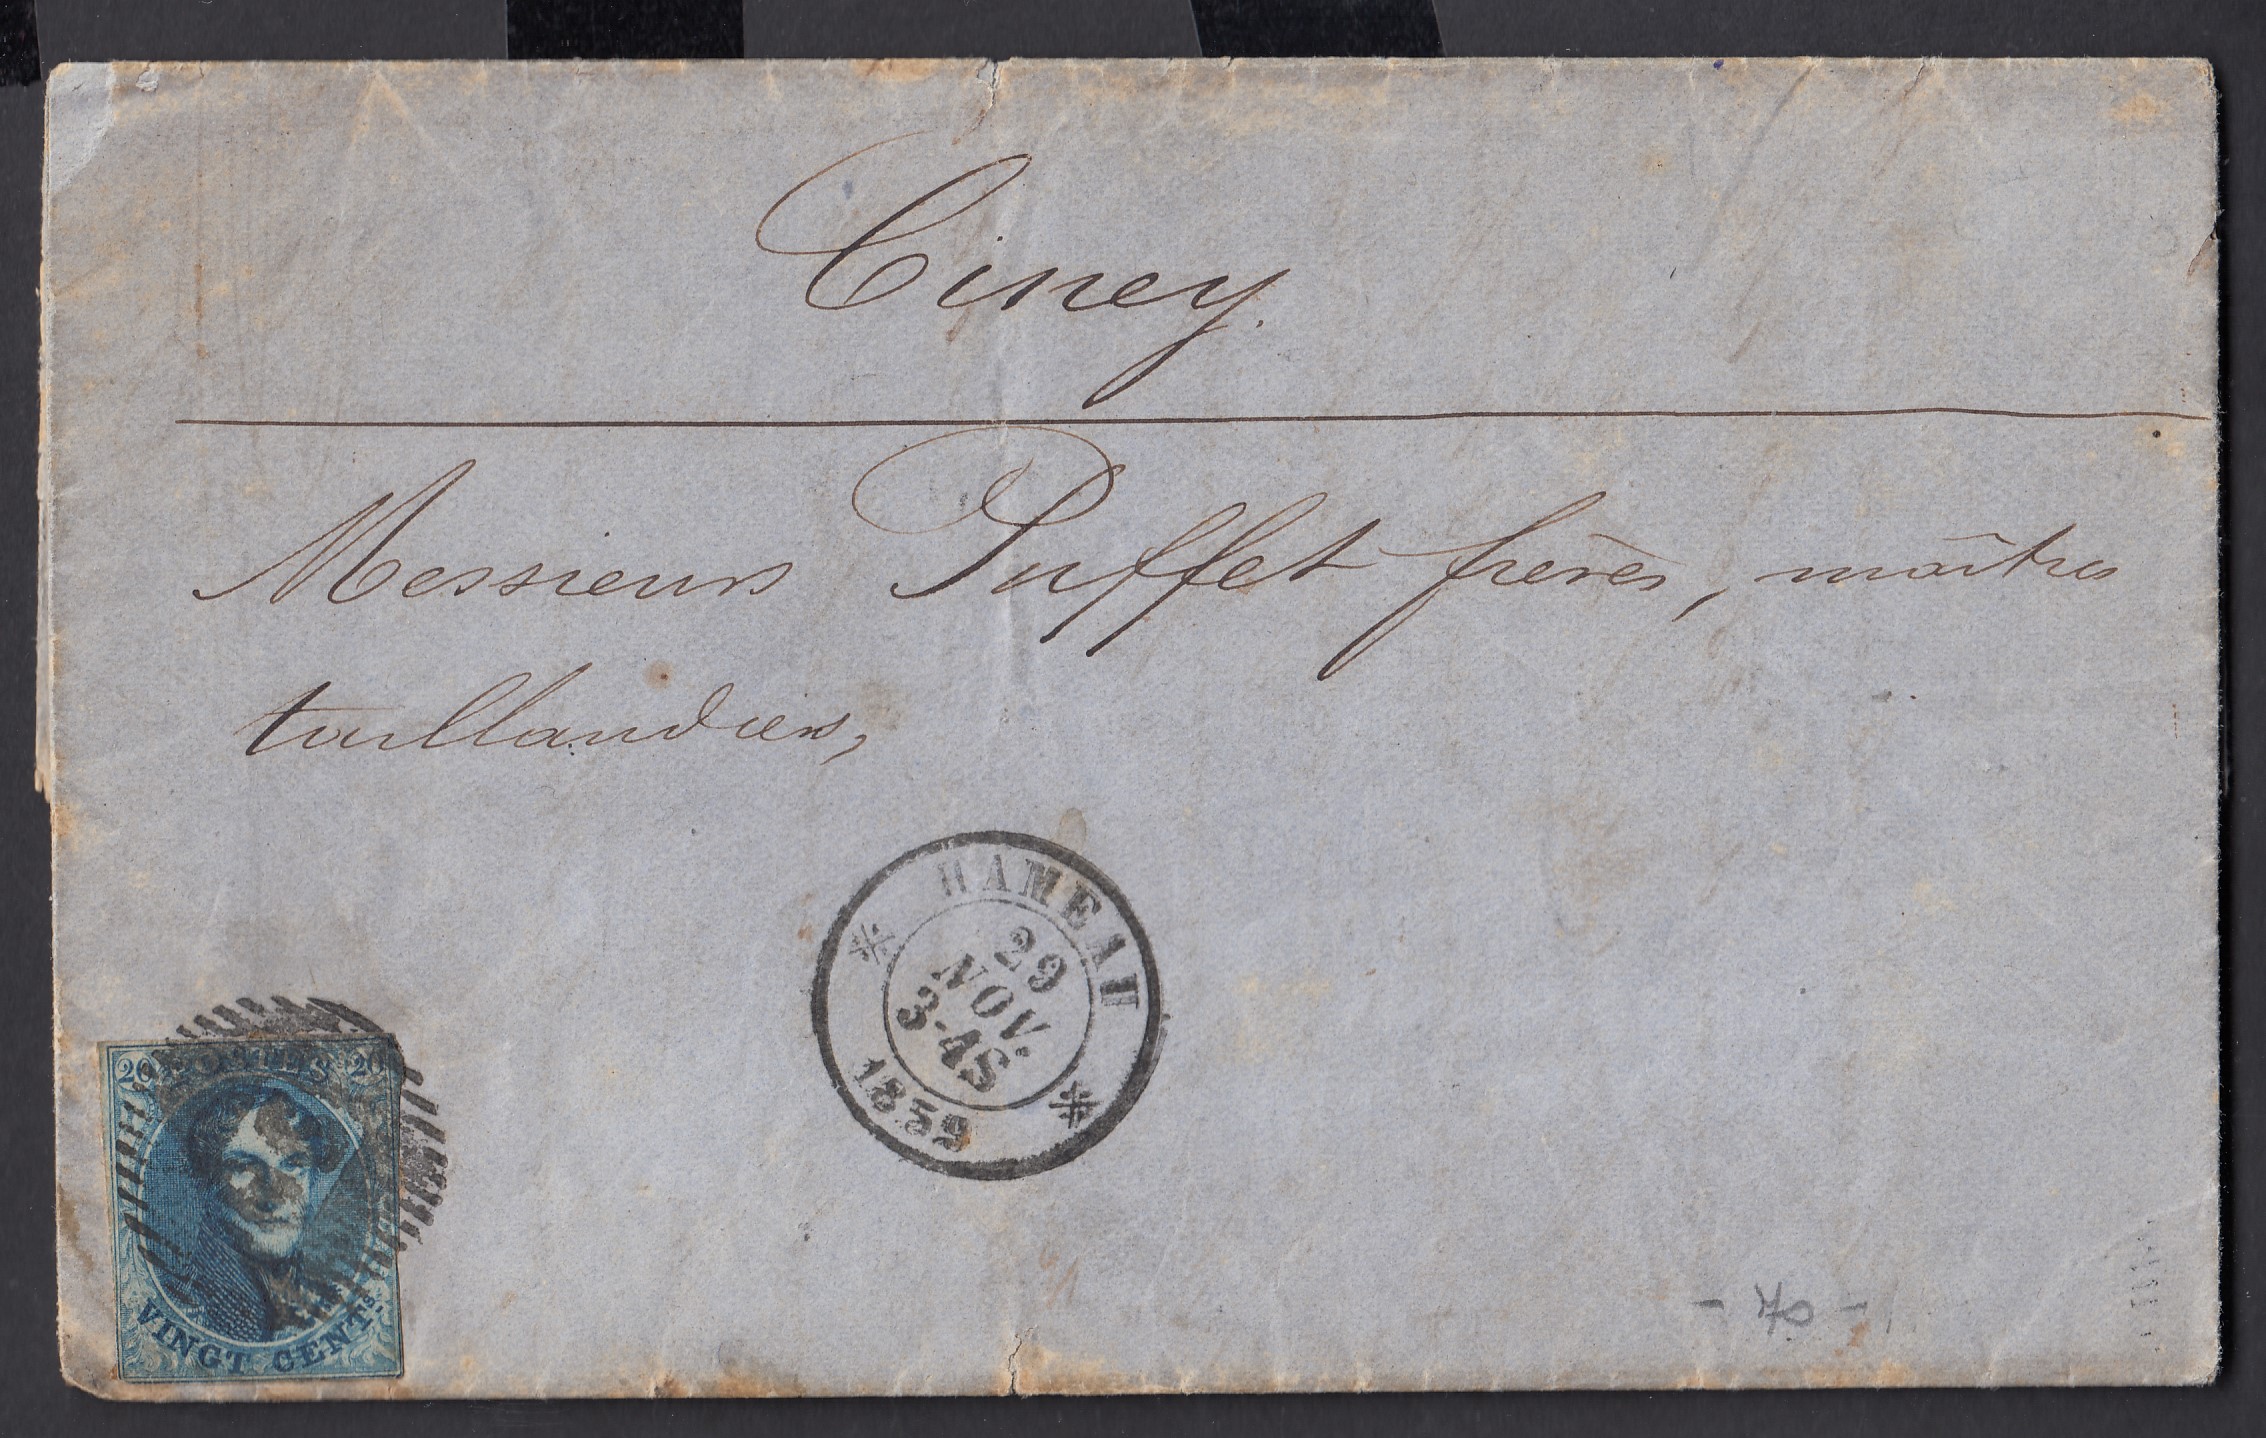 Ciney.
Messieurs Puffet frères, maîtres
taillandiers,
HAMEAU
29
NOV.
3-4S
1859
20 POSTES 20
VINGT CENTS.
- 70 -